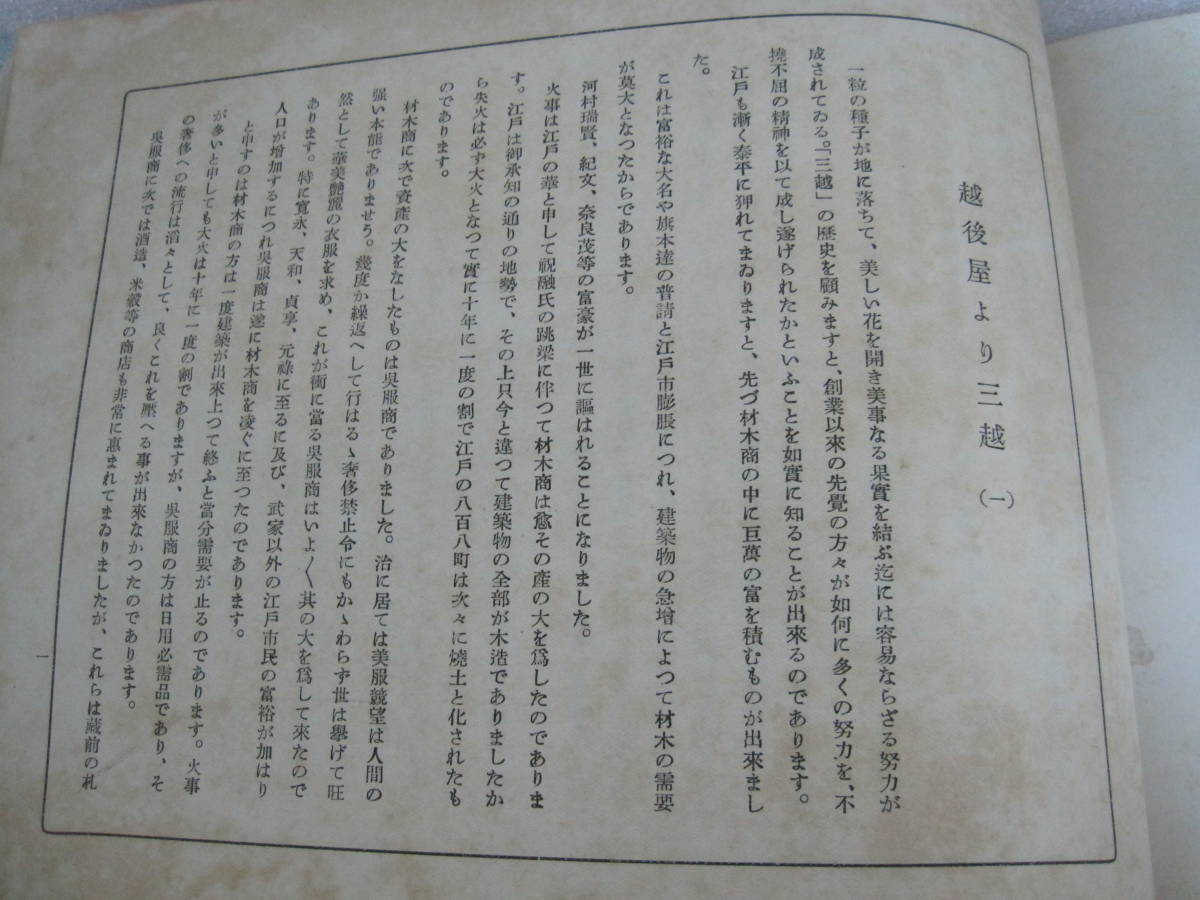 越後屋より三越 (一)
一粒の種子が地に落ちて、美しい花を開き美事なる果實を結ぶ迄には容易ならざる努力が
成されてゐる。『三越」の歷史を顧みますと、創業以來の先覺の方々が如何に多くの努力を、不
撓不屈の精神を以て成し遂げられたかといふことを如實に知ることが出來るのであります。
江戸も漸く泰平に狎れてまゐりますと、先づ材木商の中に巨萬の富を積むものが出來まし
た。
これは富裕な大名や旗本達の普請と江戸市膨脹につれ、建築物の急增によつて材木の需要
が莫大となつたからであります。
河村瑞賢、紀文、奈良茂等の富豪が一世に謳はれることになりました。
火事は江戸の華と申して祝融氏の跳梁に伴つて材木商は愈その產の大を爲したのでありま
す。江戸は御承知の通りの地勢で、その上只今と違つて建築物の全部が木造でありましたか
ら失火は必ず大火となつて實に十年に一度の割で江戸の八百八町は次々に燒土と化されたも
のであります。
材木商に次で資產の大をなしたものは吳服商でありました。治に居ては美服競望は人間の
强い本能でありませう。幾度か繰返へして行はるゝ奢侈禁止令にもかゝわらず世は擧げて旺
然として華美艷麗の衣服を求め、これが衝に當る吳服商はいよ〱其の大を爲して來たので
あります。特に寬永、天和、貞享、元祿に至るに及び、武家以外の江戸市民の富裕が加はり
人口が增加するにつれ吳服商は遂に材木商を凌ぐに至つたのであります。
と申すのは材木商の方は一度建築が出來上つて終ふと當分需要が止るのであります。火事
が多いと申しても大火は十年に一度の割でありますが、吳服商の方は日用必需品であり、そ
の奢侈への流行は滔々として、良くこれを壓へる事が出來なかつたのであります。
吳服商に次では酒造、米穀等の商店も非常に惠まれてまゐりましたが、これらは藏前の札
一